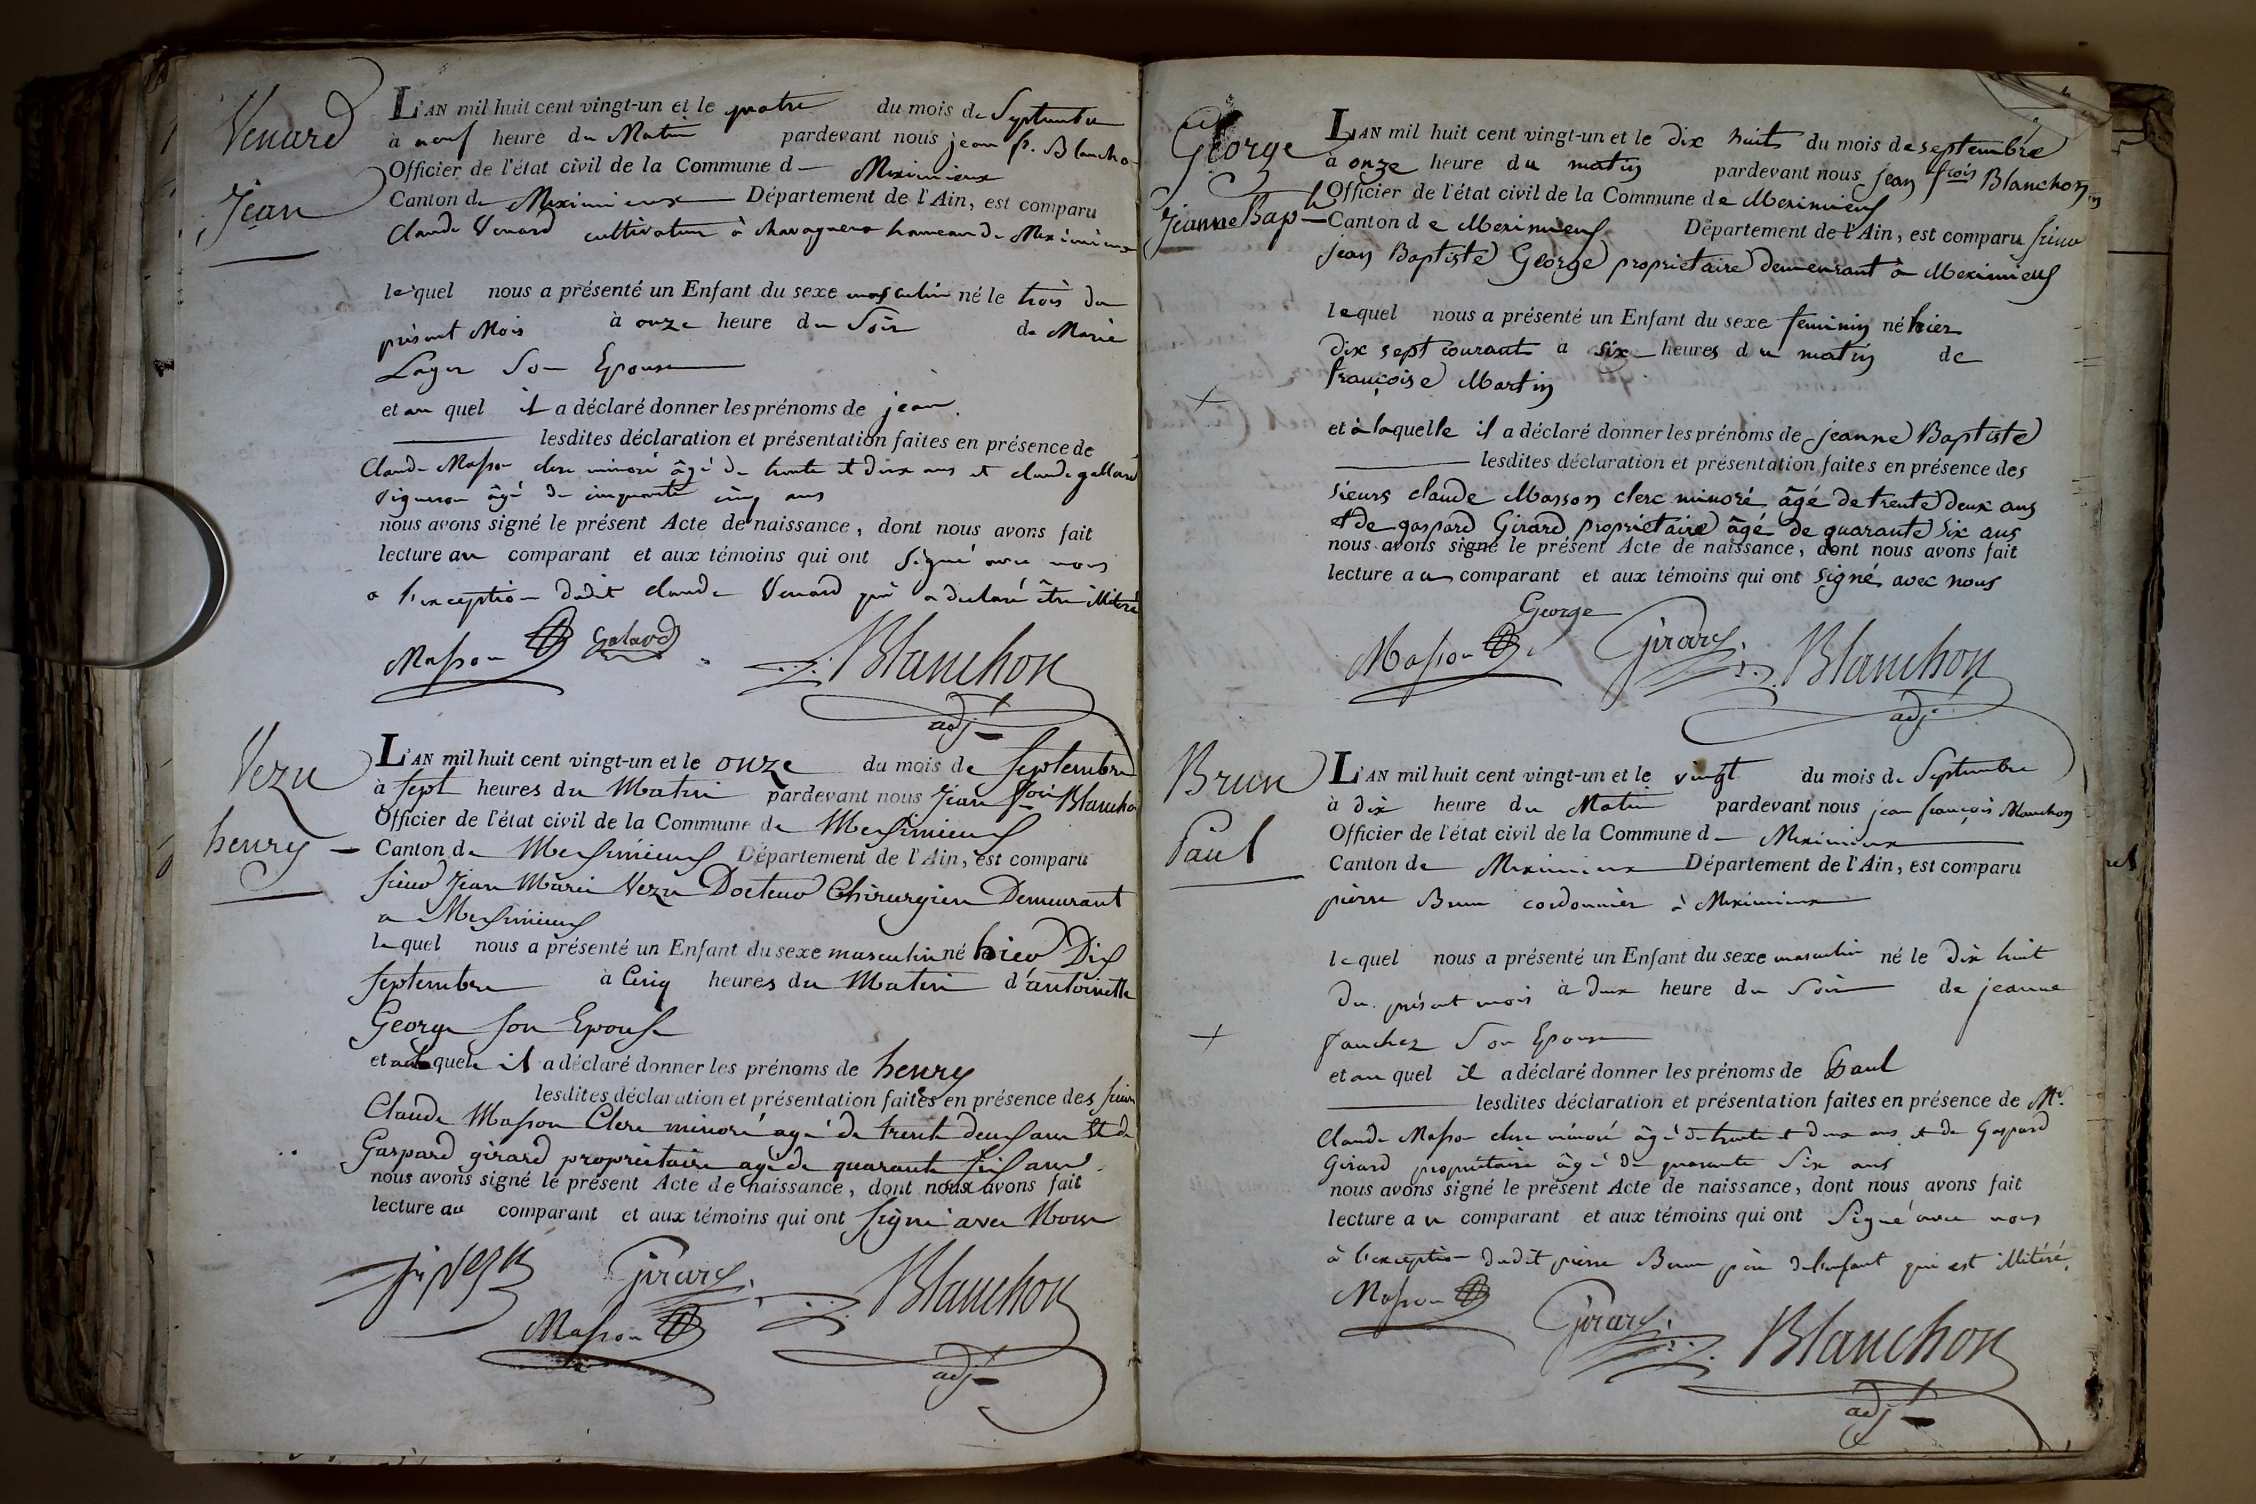 Venard
Jean
L'AN mil huit cent vingt-un et le quatre du mois de Septembre
à neuf heure du Matin pardevant nous jean fr. Blancho
Officier de l'état civil de la Commune d Meximieux
Canton de Meximieux Département de l'Ain, est comparu
Claude Venard cultivateur à chavagneux hameau de Meximieux
lequel nous a présenté un Enfant du sexe masculin né le trois du
présent Mois à onze heure du Soir de Marie
Layer Son Epouse
et au quel il a déclaré donner les prénoms de jean.
lesdites déclaration et présentation faites en présence de
Claude Masson clerc minoré âgé de trente et deux ans et claude galland
vigneron âgé de cinquante cinq ans
nous avons signé le présent Acte de naissance, dont nous avons fait
lecture au comparant et aux témoins qui ont Signé avec nous
a l'exception dudit claude Venard qui a declaré être illitéré
Masson Galand Blanchon
adj
Vezu
henry
L'AN mil huit cent vingt-un et le onze du mois de Septembre
à Sept heures du Matin pardevant nous Jean fois Blancho
Officier de l'état civil de la Commune de Meximieux
Canton de Meximieux Département de l'Ain, est comparu
Sieur Jean Marie Vezu Docteur Chirurgien Demeurant
a Meximieux
lequel nous a présenté un Enfant du sexe masculin né hier Dix
Septembre à Cinq heures du Matin d'antoinette
George Son Epouse
et auquel il a déclaré donner les prénoms de henry
lesdites déclaration et présentation faites en présence des Sieurs
Claude Masson Clerc minoré agé de trente deux ans Et de
Gaspard girard propriétaire agé de quarante Six ans
nous avons signé le présent Acte de naissance, dont nous avons fait
lecture au comparant et aux témoins qui ont Signé avec Nous
Vezu Girard Blanchon
Masson
adj
George
Jeanne Bap
L'AN mil huit cent vingt-un et le dix huit du mois de septembre
à onze heure du matin pardevant nous jean fcois Blanchon
Officier de l'état civil de la Commune de Meximieux
Canton de Meximieux Département de l'Ain, est comparu Sieur
jean Baptiste George propriétaire demeurant à Meximieux
lequel nous a présenté un Enfant du sexe feminin né hier
dix sept courant a six heures du matin de
françoise Martin
et à laquelle il a déclaré donner les prénoms de jeanne Baptiste
lesdites déclaration et présentation faites en présence des
sieurs claude Masson clerc minoré âgé de trente deux ans
et de gaspard Girard propriétaire âgé de quarante six ans
nous avons signé le présent Acte de naissance, dont nous avons fait
lecture au comparant et aux témoins qui ont signé avec nous
George
Masson Girard Blanchon
adj.
Brun
Paul
L'AN mil huit cent vingt-un et le vingt du mois de Septembre
à dix heure du Matin pardevant nous jean françois Blanchon
Officier de l'état civil de la Commune d Meximieux
Canton de Meximieux Département de l'Ain, est comparu
pierre Brun cordonnier à Meximieux
lequel nous a présenté un Enfant du sexe masculin né le dix huit
du présent mois à deux heure du Soir de jeanne
fauchez Son Epouse
et au quel il a déclaré donner les prénoms de Paul
lesdites déclaration et présentation faites en présence de Mr.
Claude Masson clerc minoré âgé de trente et deux ans et de Gaspard
Girard propriétaire âgé de quarante Six ans
nous avons signé le présent Acte de naissance, dont nous avons fait
lecture au comparant et aux témoins qui ont Signé avec nous
à l'exception dudit pierre Brun père de l'enfant qui est illitéré.
Masson Girard Blanchon
adj